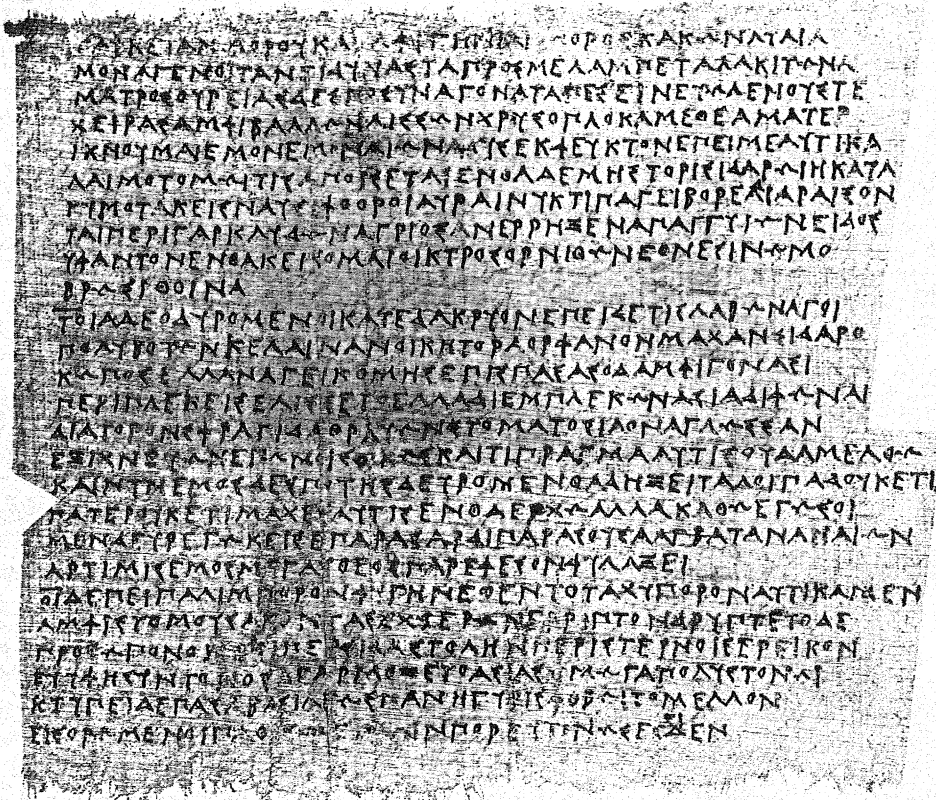 ΓΛΥΚΕΙΑΝ ΜΟΡΟΥ ΚΑΤΑΦΥΓΗΝ ΙΛΙΟΠΟΡΟΣ ΚΑΚΩΝ ΛΥΑΙΑ
ΜΟΝΑ ΓΕΝΟΙΤ ΑΝ ΕΙ ΔΥΝΑΣΤΑ ΠΡΟΣ ΜΕΛΑΜΠΕΤΑΛΑΚΙΤΩΝΑ
ΜΑΤΡΟΣ ΟΥΡΕΙΑΣ ΔΕΣΠΟΣΥΝΑ ΓΟΝΑΤΑ ΠΕΣΕΙΝ ΕΥΩΛΕΝΟΥΣ ΤΕ
ΧΕΙΡΑΣ ΑΜΦΙΒΑΛΛΩΝ ΛΙΣΣΩΝ ΧΡΥΣΟΠΛΟΚΑΜΕ ΘΕΑ ΜΑΤΕΡ
ΙΚΝΟΥΜΑΙ ΕΜΟΝ ΕΜΟΝ ΑΙΩΝΑ ΔΥΣΕΚΦΕΥΚΤΟΝ ΕΠΕΙ ΜΕ ΑΥΤΙΚΑ
ΛΑΙΜΟΤΟΜΩΙ ΤΙΣ ΑΠΟΙΣΕΤΑΙ ΕΝΘΑΔΕ ΜΗΣΤΟΡΙ ΣΙΔΑΡΩΙ Η ΚΑΤΑ
ΚΥΜΟΤΑΚΕΙΣ ΝΑΥΣΙΦΘΟΡΟΙ ΑΥΡΑΙ ΝΥΚΤΙΠΑΓΕΙ ΒΟΡΕΑΙ ΔΙΑΡΑΙΣΟΝ
ΤΑΙ ΠΕΡΙ ΓΑΡ ΚΛΥΔΩΝ ΑΓΡΙΟΣ ΑΝΕΡΡΗΞΕΝ ΑΠΑΓ ΓΥΙΩΝ ΕΙΔΟΣ
ΥΦΑΝΤΟΝ ΕΝΘΑ ΚΕΙΣΟΜΑΙ ΟΙΚΤΡΟΣ ΟΡΝΙΘΩΝ ΕΘΝΕΣΙΝ ΩΜΟ
ΒΡΩΣΙ ΘΟΙΝΑ
ΤΟΙΑΔΕ ΟΔΥΡΟΜΕΝΟΙ ΚΑΤΕΔΑΚΡΥΟΝ ΕΠΕΙ ΔΕ ΤΙΣ ΛΑΒΩΝ ΑΓΟΙ
ΠΟΛΥΒΟΤΩΝ ΚΕΛΑΙΝΑΝ ΟΙΚΗΤΟΡΑ ΟΡΦΑΝΟΝ ΜΑΧΑΝ ΣΙΔΑΡΟ
ΚΩΠΟΣ ΕΛΛΑΝ ΑΓΕΙ ΚΟΜΗΣ ΕΠΙΣΠΑΣΑΣ Ο Δ ΑΜΦΙ ΓΟΝΑΣΙ
ΠΕΡΙΠΛΕΚΕΙΣ ΕΛΙΣΣΕΤΟ ΕΛΛΑΔΙ ΕΜΠΛΕΚΩΝ ΑΣΙΑΔΙ ΦΩΝΑΙ
ΔΙΑΤΟΡΟΝ ΣΦΡΑΓΙΔΑ ΘΡΑΥΩΝ ΣΤΟΜΑΤΟΣ ΙΑΟΝΑ ΓΛΩΣΣΑΝ
ΕΞΙΧΝΕΥΩΝ ΕΓΩ ΜΟΙ ΣΟΙ ΚΩΣ ΚΑΙ ΤΙ ΠΡΑΓΜΑ ΑΥΤΙΣ ΟΥΔΑΜ ΕΛΘΩ
ΚΑΙ ΝΥΝ ΕΜΟΣ ΔΕΣΠΟΤΗΣ ΔΕΥΡΟ Μ ΕΝΘΑΔ ΗΞΕΙ ΤΑ ΛΟΙΠΑΔ ΟΥΚΕΤΙ
ΠΑΤΕΡ ΟΥΚΕΤΙ ΜΑΧΕΣ ΑΥΤΙΣ ΕΝΘΑΔ ΕΡΧΩ ΑΛΛΑ ΚΑΘΩ ΕΓΩ ΣΟΙ
ΜΕΝ ΔΕΥΡ ΕΓΩ ΚΕΙΣΕ ΠΑΡΑ ΣΑΡΔΙ ΠΑΡΑ ΣΟΥΣΑ ΑΓΒΑΤΑΝΑ ΝΑΙΩΝ
ΑΡΤΙΜΙΣ ΕΜΟΣ ΜΕΓΑΣ ΘΕΟΣ ΠΑΡ ΕΦΕΣΟΝ ΦΥΛΑΞΕΙ
ΟΙ Δ ΕΠΕΙ ΠΑΛΙΜΠΟΡΟΝ ΦΥΓΗΝ ΕΘΕΝΤΟ ΤΑΧΥΠΟΡΟΝ ΑΥΤΙΚΑ ΜΕΝ
ΑΜΦΙΣΤΟΜΟΥΣ ΑΚΟΝΤΑΣ ΕΚ ΧΕΡΩΝ ΕΡΙΠΤΟΝ ΔΡΥΠΤΕΤΟ ΔΕ
ΠΡΟΣΩΠΟΝ ΟΝΥΞΙ ΠΕΡΣΙΔΑ ΣΤΟΛΗΝ ΠΕΡΙ ΣΤΕΡΝΟΙΣ ΕΡΕΙΚΟΝ
ΕΥΥΦΗ ΣΥΝΤΟΝΟΣ Δ ΑΡΜΟΖΕΤΟ ΑΣΙΑΣ ΟΙΜΩΓΑ ΠΟΛΥΣΤΟΝΩΙ
ΚΤΥΠΕΙ ΔΕ ΠΑΣΑ ΒΑΣΙΛΕΩΣ ΠΑΝΗΓΥΡΙΣ ΦΟΒΩΙ ΤΟ ΜΕΛΛΟΝ
ΕΙΣΟΡΩΜΕΝΟΙ ΠΑΘΟΣ Ο ΔΕ ΠΑΛΙΝΠΟΡΕΥΤΟΝ ΩΣ ΕΣΕΙΔΕΝ